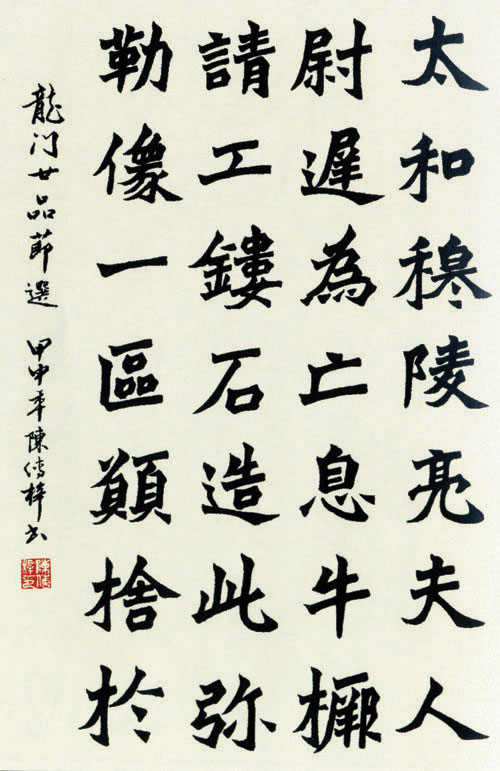 太和穆陵亮夫人
尉遲為亡息牛橛
請工鏤石造此弥
勒像一區願捨於
龍门廿品節選 甲申年陳传梓书